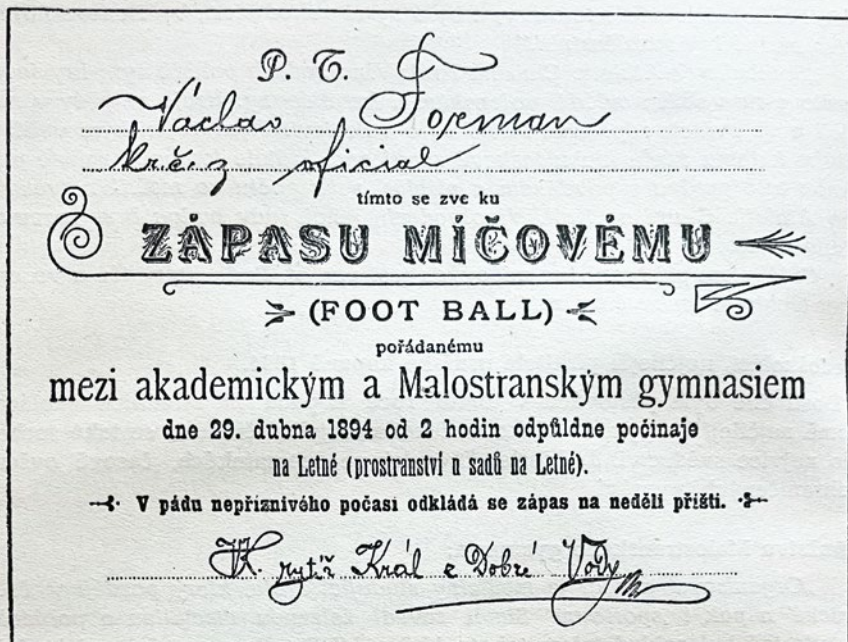 P. T.
Václav Forman
oficial
tímto se zve ku
ZÁPASU MÍČOVÉMU
(FOOT BALL)
pořádanému
mezi akademickým a Malostranským gymnasiem
dne 29. dubna 1894 od 2 hodin odpůldne počínaje
na Letné (prostranství u sadů na Letné).
V pádu nepříznivého počasí odkládá se zápas na neděli příští.
K. rytíř Král z Dobré Vody